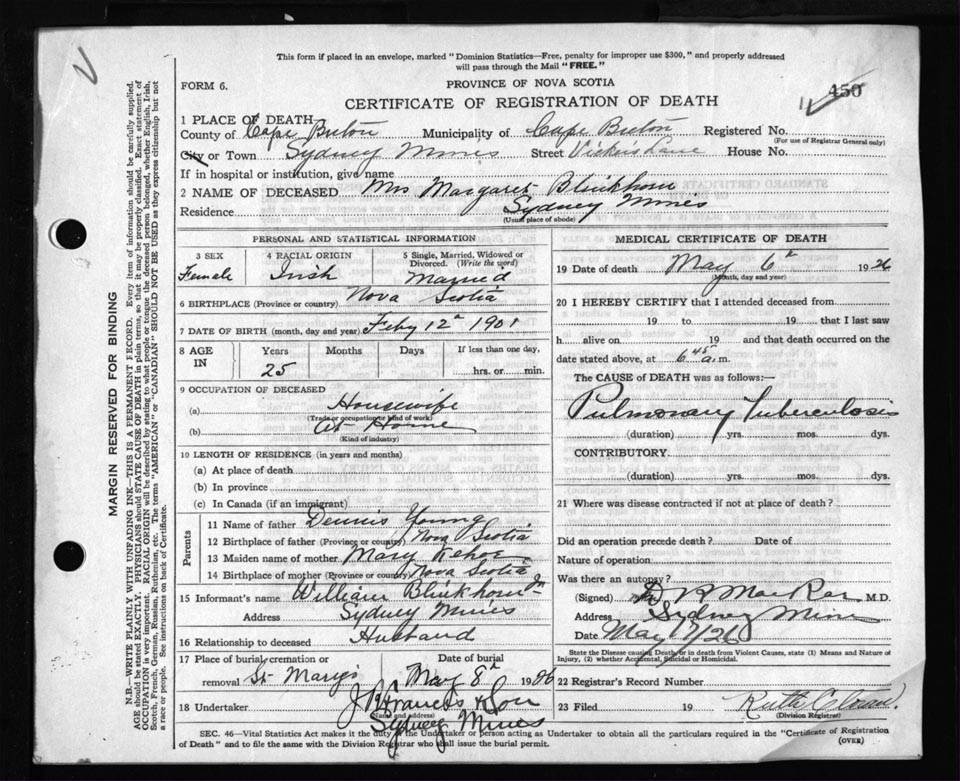 This form if placed in an envelope, marked "Dominion Statistics—Free, penalty for improper use $300," and properly addressed
will pass through the Mail "FREE."
FORM 6.
PROVINCE OF NOVA SCOTIA
CERTIFICATE OF REGISTRATION OF DEATH
450
1 PLACE OF DEATH
County of Cape Breton Municipality of Cape Breton Registered No.
(For use of Registrar General only)
City or Town Sydney Mines Street Vickers Lane House No.
If in hospital or institution, give name
2 NAME OF DECEASED Mrs Margaret Blinkhorn
Residence Sydney Mines
(Usual place of abode)
PERSONAL AND STATISTICAL INFORMATION
3 SEX 4 RACIAL ORIGIN 5 Single, Married, Widowed or Divorced. (Write the word)
Female Irish Married
6 BIRTHPLACE (Province or country) Nova Scotia
7 DATE OF BIRTH (month, day and year) Feby 12th 1901
8 AGE IN Years Months Days If less than one day,
25 hrs. or min.
9 OCCUPATION OF DECEASED
(a) Housewife
(Trade or occupation or kind of work)
(b) At Home
(Kind of industry)
10 LENGTH OF RESIDENCE (in years and months)
(a) At place of death
(b) In province
(c) In Canada (if an immigrant)
Parents
11 Name of father Dennis Young
12 Birthplace of father (Province or country) Nova Scotia
13 Maiden name of mother Mary Kehoe
14 Birthplace of mother (Province or country) Nova Scotia
15 Informant's name William Blinkhorn
Address Sydney Mines
16 Relationship to deceased Husband
17 Place of burial, cremation or removal St Mary's Date of burial May 8th 1926
18 Undertaker J R Francis & Son
(Name and address)
Sydney Mines
MEDICAL CERTIFICATE OF DEATH
19 Date of death May 6th 1926
(Month, day and year)
20 I HEREBY CERTIFY that I attended deceased from
19 to 19 that I last saw
h alive on 19 and that death occurred on the
date stated above, at 6 45 a.m.
The CAUSE of DEATH was as follows:—
Pulmonary Tuberculosis
(duration) yrs. mos. dys.
CONTRIBUTORY
(duration) yrs. mos. dys.
21 Where was disease contracted if not at place of death?
Did an operation precede death? Date of
Nature of operation
Was there an autopsy?
(Signed) MacRae M.D.
Address Sydney Mines
Date May 17/26
State the Disease causing Death or in death from Violent Causes, state (1) Means and Nature of
Injury, (2) whether Accidental, Suicidal or Homicidal.
22 Registrar's Record Number
23 Filed 19 Ruth
(Division Registrar)
SEC. 46—Vital Statistics Act makes it the duty of the Undertaker or person acting as Undertaker to obtain all the particulars required in the "Certificate of Registration
of Death" and to file the same with the Division Registrar who shall issue the burial permit.
(OVER)
MARGIN RESERVED FOR BINDING
N.B.—WRITE PLAINLY WITH UNFADING INK—THIS IS A PERMANENT RECORD. Every item of information should be carefully supplied.
AGE should be stated EXACTLY. PHYSICIANS should STATE CAUSE OF DEATH in plain terms, so that it may be properly classified. Exact statement of
OCCUPATION is very important. RACIAL ORIGIN will be described by stating to what people or tongue the deceased person belonged, whether English, Irish,
Scotch, French, German, Russian, Ruthenian, etc. The terms "AMERICAN" or "CANADIAN" SHOULD NOT BE USED as they express citizenship but not
a race or people. See instructions on back of Certificate.